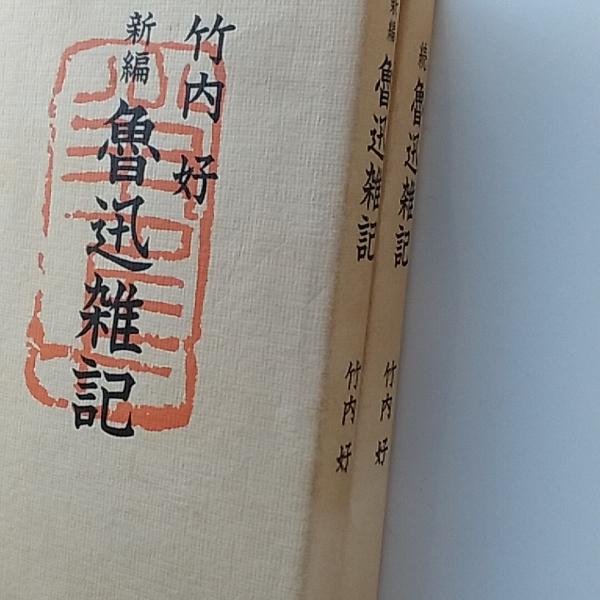 竹内 好
新編
魯迅雑記
新編
魯迅雑記
竹内 好
続
魯迅雑記
竹内 好